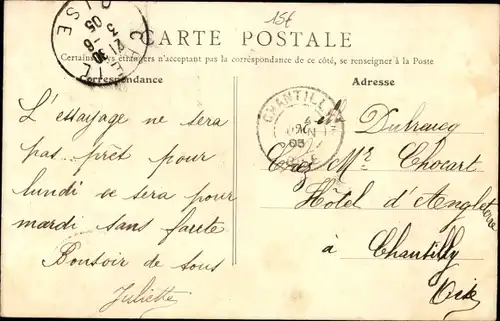 15f
CARTE POSTALE
Certains pays étrangers n'acceptant pas la correspondance de ce côté, se renseigner à la Poste
Correspondance
Adresse
L'essayage ne sera
pas prêt pour
lundi ce sera pour
mardi sans faute
Bonsoir de tous
Juliette
CHANTILLY
05
OISE
Chez Mr Chocart
Hôtel d'Angleterre
à
Chantilly
Oise